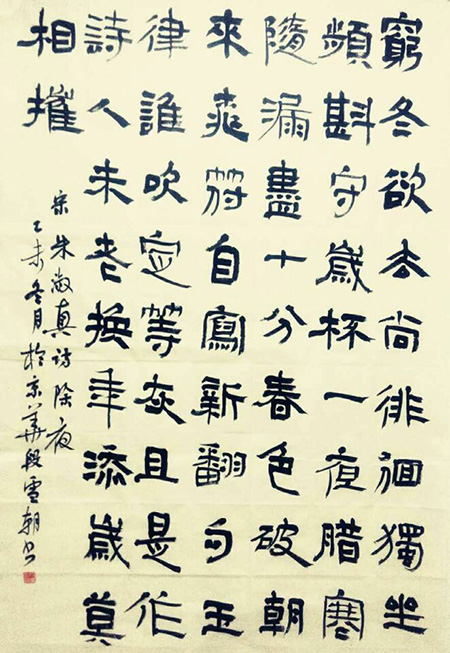 窮冬欲去尚徘徊獨坐
頻斟守歲杯一夜腊寒
隨漏盡十分春色破朝
來桃符自寫新翻句玉
律誰吹定等灰且是作
詩人未老換年添歲莫
相摧
宋朱淑真詩除夜
乙未冬月於京華段雪朝书